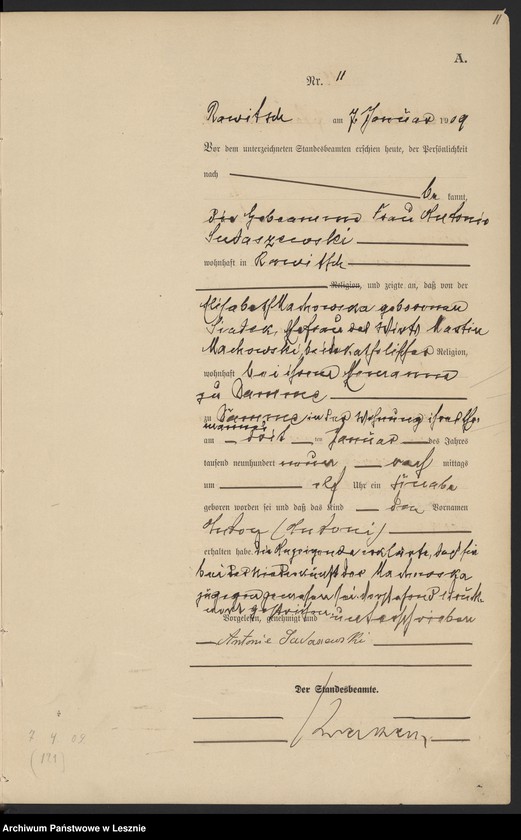 11
A.
Nr. 11
Rawitsch am 7. Januar 1909
Vor dem unterzeichneten Standesbeamten erschien heute, der Persönlichkeit
nach
be kannt,
die Hebeamme Frau Antonie
wohnhaft in Rawitsch
Religion, und zeigte an, daß von der
Elisabeth Machowska geborenen
Ehefrau des Wirts Martin
Machowski, beide katholischer Religion,
wohnhaft bei ihrem Ehemanne
zu Damme
zu Damme in der Wohnung ihres Ehe-
mannes
am drit ten Januar des Jahres
tausend neunhundert neun nach mittags
um elf Uhr ein Knabe
geboren worden sei und daß das Kind den Vornamen
Anton (Antoni)
erhalten habe. Die Anzeigende erklärte, daß sie
bei der Niederkunft der Machowska
zugegen gewesen sei. Vorstehend 1 Druck-
wort gestrichen.
Vorgelesen, genehmigt und unterschrieben
Antonie
Der Standesbeamte.
7 4 09
(121)
Archiwum Państwowe w Lesznie